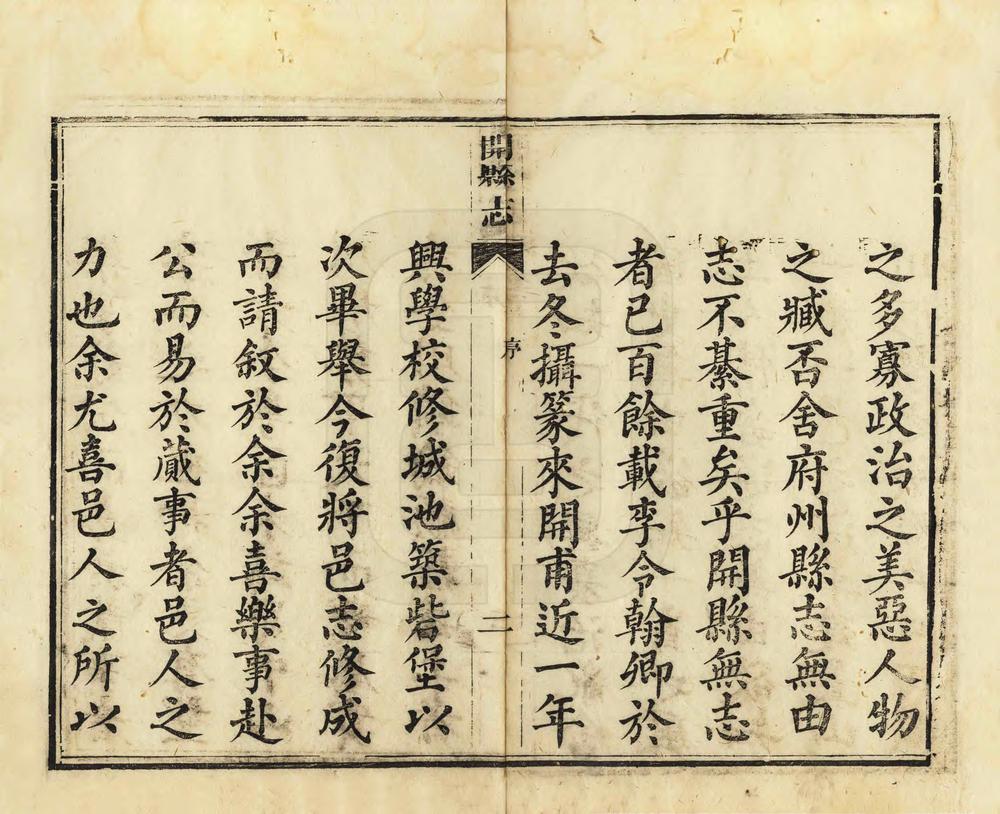 之多寡政治之美惡人物
之臧否舍府州縣志無由
志不綦重矣乎開縣無志
者已百餘載李令翰卿於
去冬攝篆來開甫近一年
開縣志
序
二
興學校修城池築砦堡以
次畢舉今復將邑志修成
而請叙於余余喜樂事赴
公而易於蕆事者邑人之
力也余尤喜邑人之所以